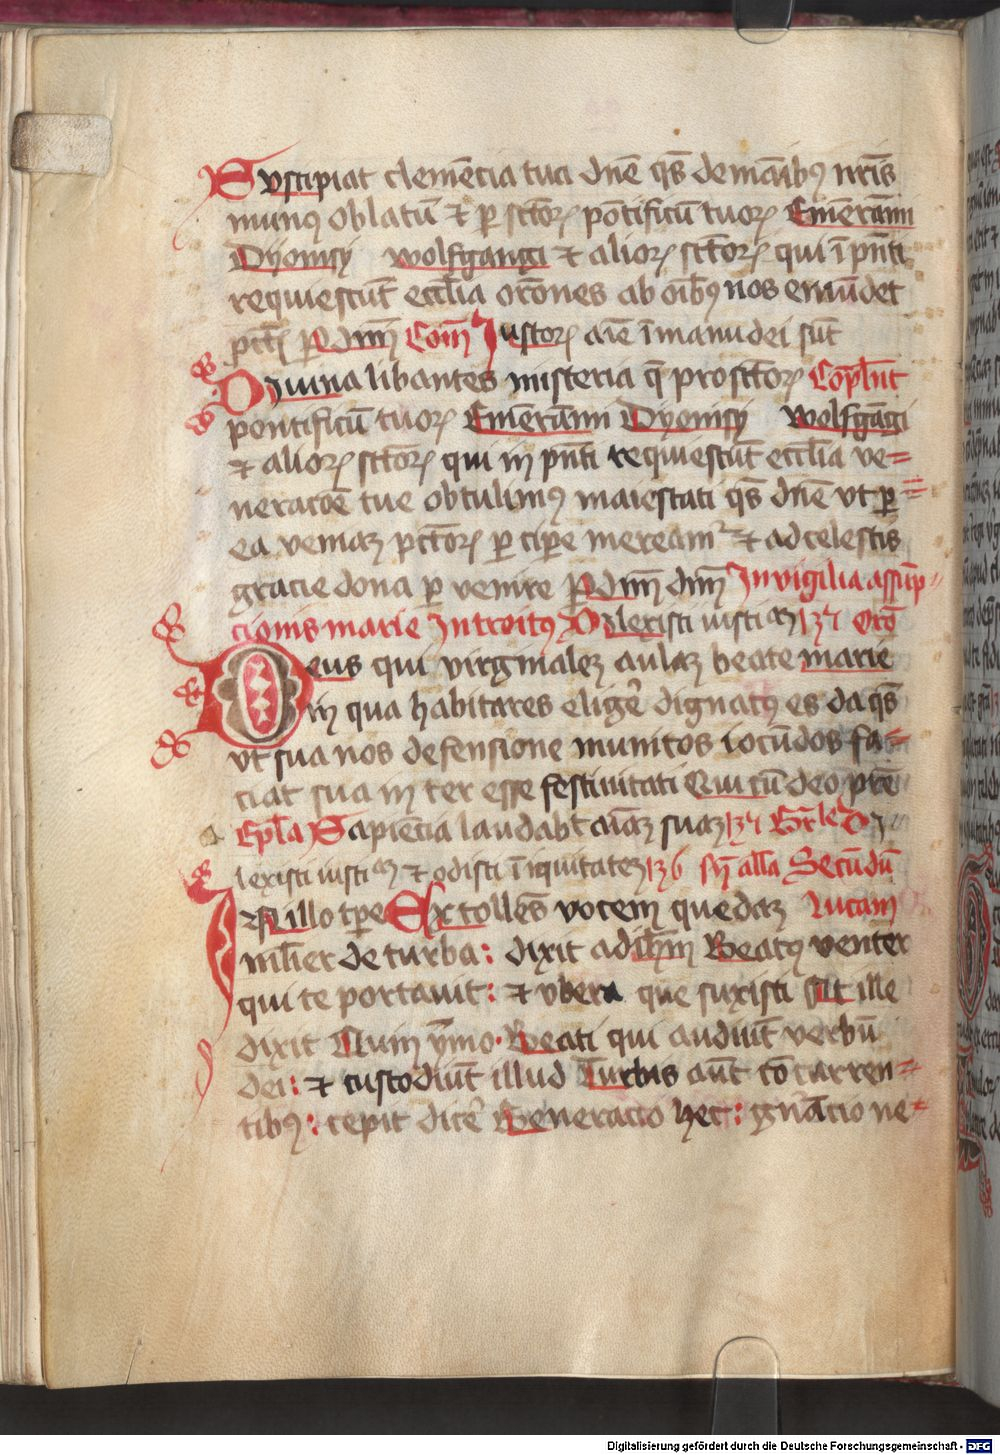 Suscipiat clemēcia tua dnē qs̄ de manibꝰ nr̄is
munꝰ oblatū ⁊ ꝑ sctōꝝ pōtificū tuoꝝ Emērāmi
Dyonisy wolfgangi ⁊ alioꝝ sctōꝝ qui ī pn̄ti
requiescūt eccl̄ia orōnes ab oīb9 nos emūdet
pctīs ꝑ dnm̄ Com̄ Iustoꝝ aīe ī manu dei sūt
Diuina libantes misteria q̄ pro sctōꝝ Cōpl̄nt
pontificū tuoꝝ Emērāmi Dyonisy wolfgāgi
⁊ alioꝝ sctōꝝ qui in pn̄ti requiescūt eccl̄ia ve=
neracōe tue obtulimꝰ maiestati qs̄ dnē vt ꝑ
ea veniaꝫ pctōꝝ ꝑcipe mereamᷣ ⁊ ad celestis
gracie dona ꝑuenire ꝑ dnm̄ dnm̄ In vigilia assūp=
cionis marie Introitꝰ Dilexisti iusticiaꝫ 137 Orō
Deus qui virginaleꝫ aulaꝫ beate marie
in qua habitares eligẽ dignatꝰ es da qs̄
vt sua nos defensione munitos iocūdos fa=
ciat sua in ter esse festiuitati Qui cū deo pr̄e
Epl̄a Sapiēcia laudabt aīaꝫ suaꝫ 137 Gr̄le Di
lexisti iusticiaꝫ ⁊ odisti īiquitateꝫ 136 sn̄ all̄a Secūdū
In illo tꝑe Extollēs vocem quedaꝫ Lucam
mul̄ier de turba: dixit ad ihm̄ Beatꝰ venter
qui te portauit: ⁊ vbera que suxisti At ille
dixit Quin ymo. Beati qui audiūt verbū
dei: ⁊ custodiūt illud Turbis aūt cōcurren=
tibꝰ: cepit dicẽ Generacio hec: gn̄acio ne=
Digitalisierung gefördert durch die Deutsche Forschungsgemeinschaft - DFG